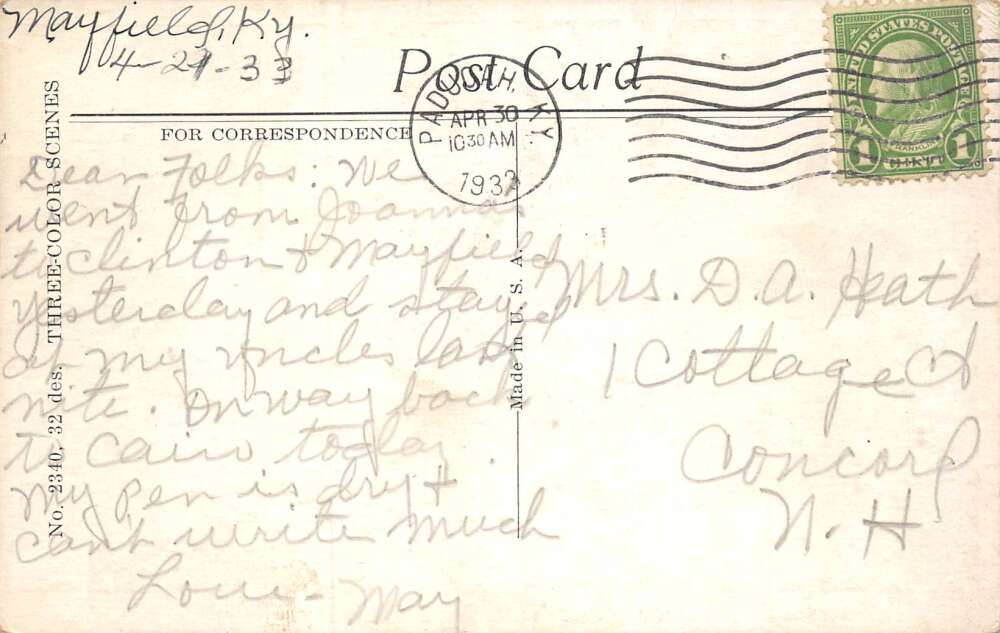 Mayfield, Ky.
4-27-33
Post Card
FOR CORRESPONDENCE
PADUCAH, KY.
APR 30
10 30 AM
193
UNITED STATES POSTAGE
FRANKLIN
1 CENT 1
No. 2340, 32 des. THREE-COLOR SCENES
Made in U. S. A.
Dear Folks: We
went from Joanna's
to Clinton & Mayfield
yesterday and stayed
at my uncles last
nite. On way back
to Cairo today
My pen is dry &
cant write much
Love - May
Mrs. D. A. Heath
1 Cottage Ct
Concord
N. H